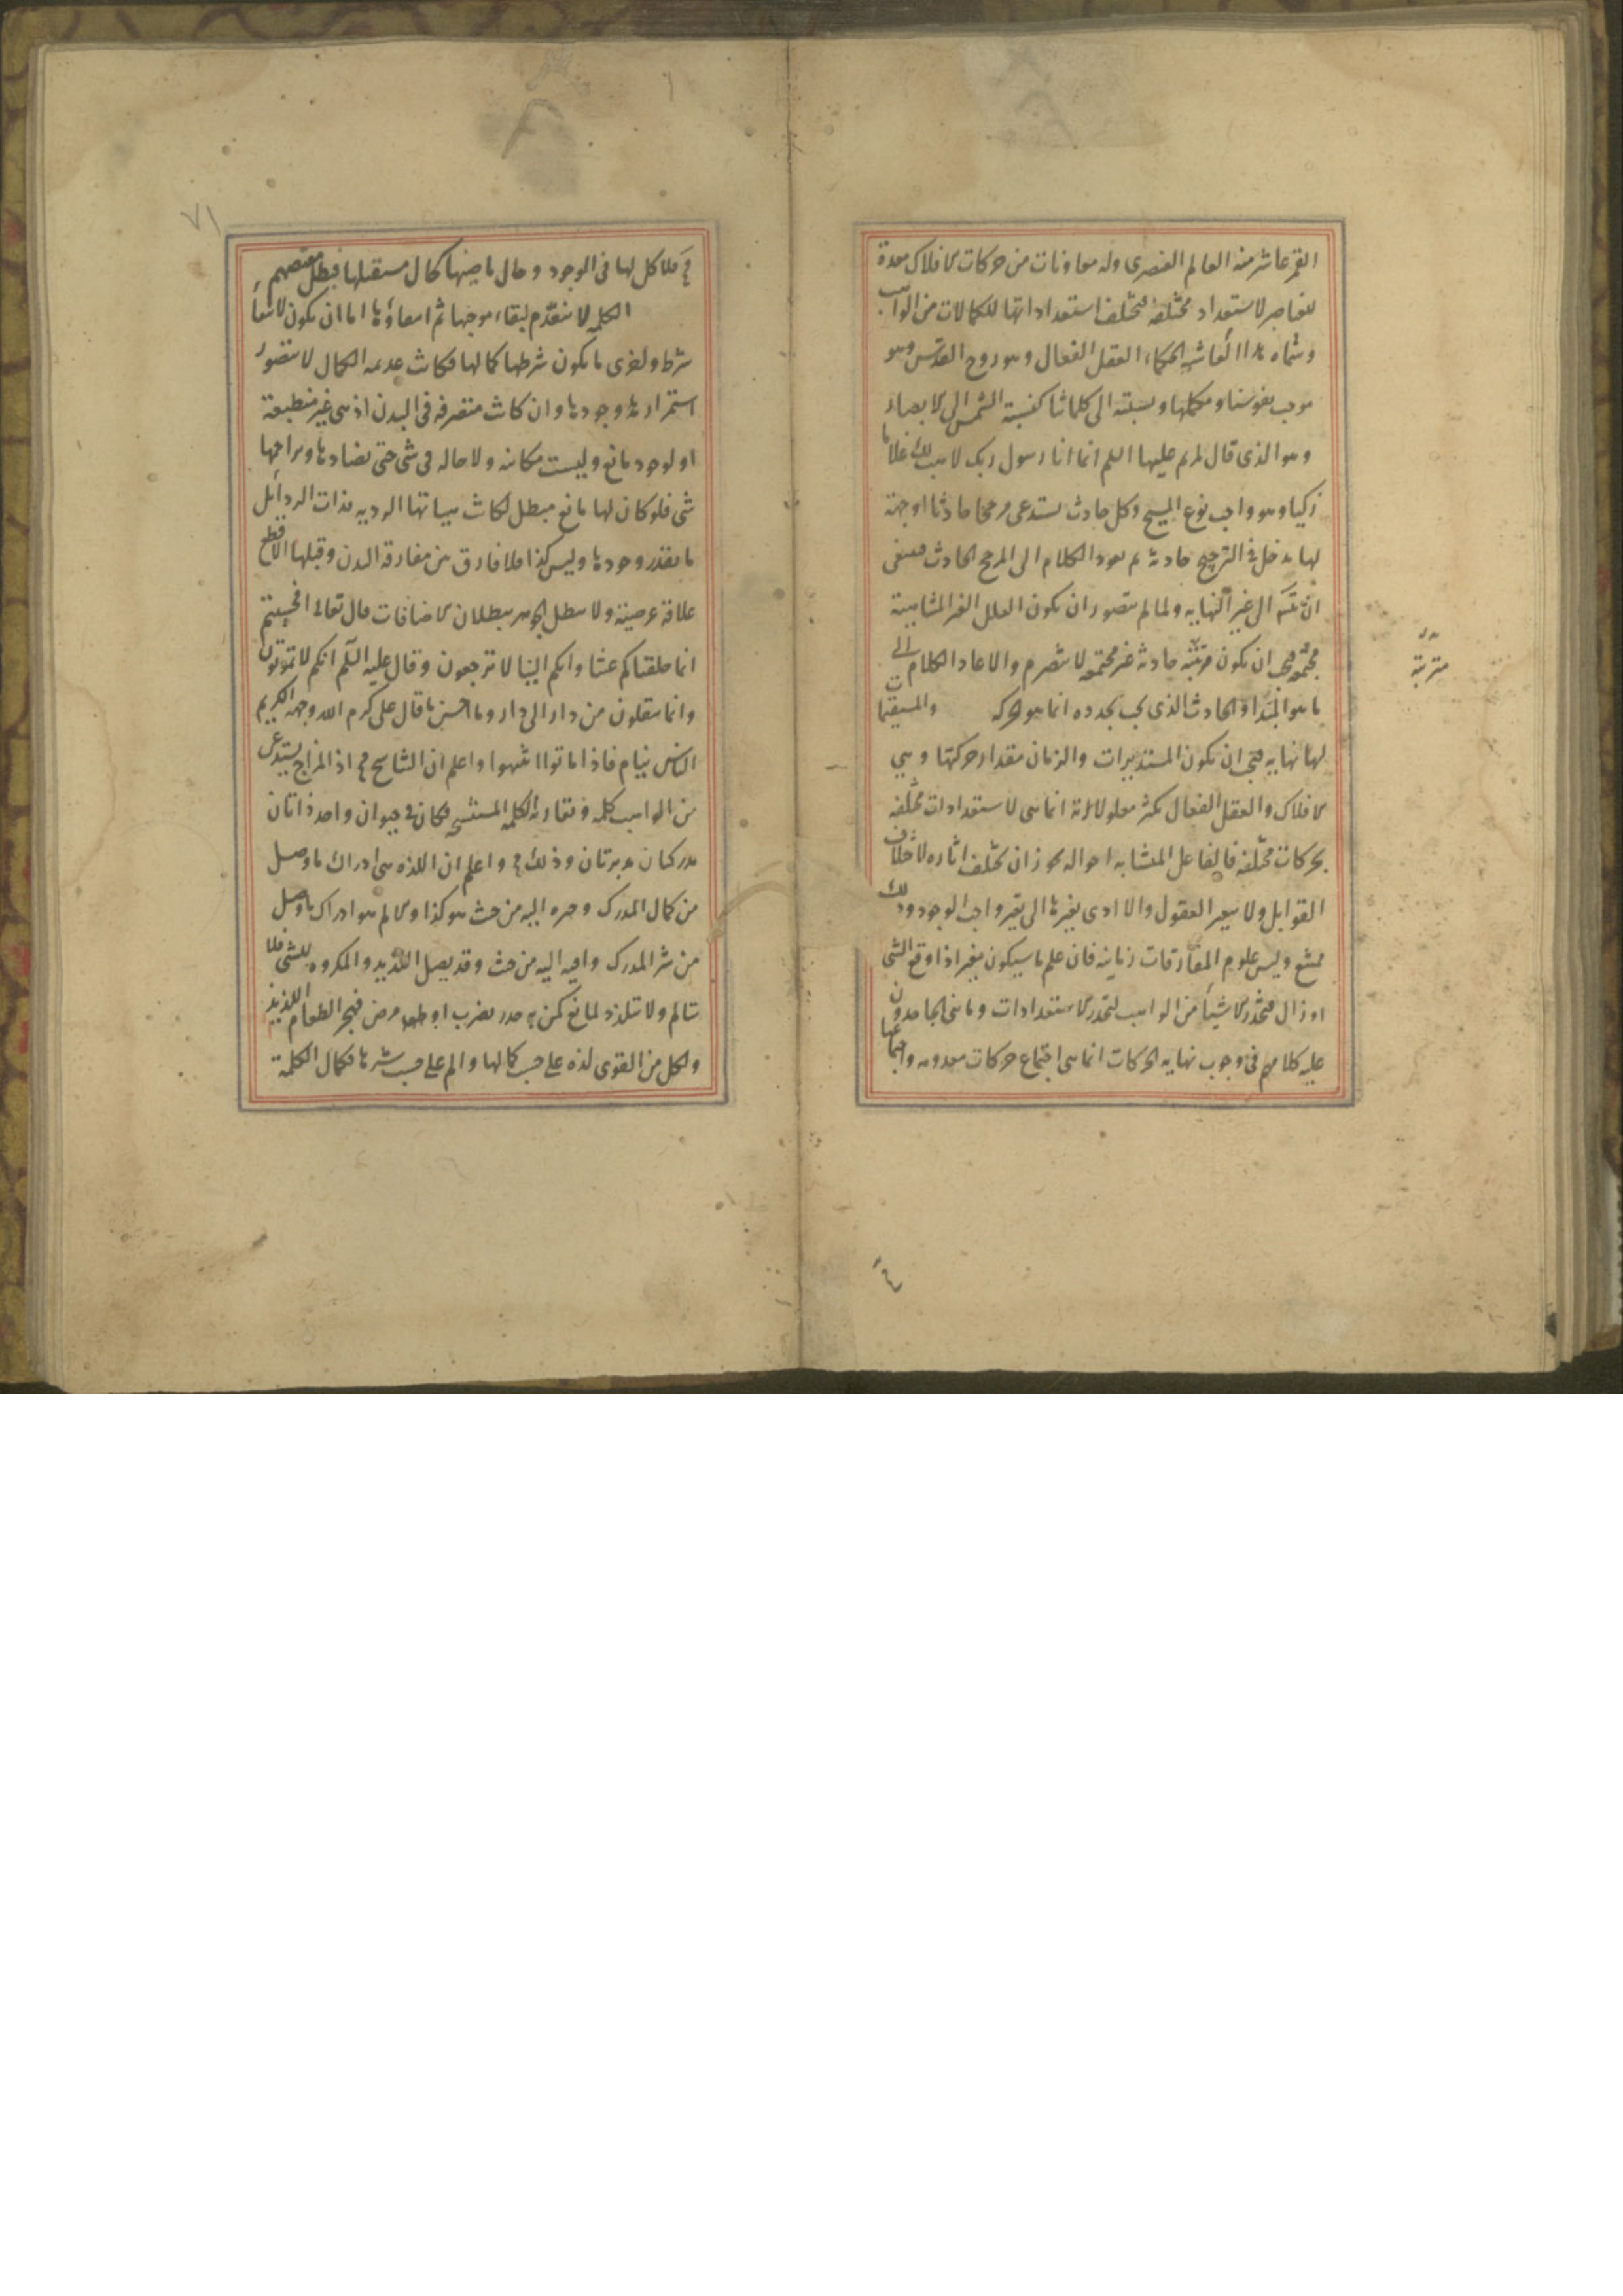 القمر عاشر منه العالم العنصرى وله معاونات من حركات الافلاك معدة
للعناصر لاستعداد مختلفة فتختلف استعداداتها للكمالات من الواهب
وسماه هذا العاشر الحكماء العقل الفعال وهو روح القدس وهو
موجب نفوسنا ومكملها ونسبته الى كلماتنا كنسبة الشمس الى الابصار
وهو الذى قال لمريم عليها السلم انما انا رسول ربك لاهب لك غلاما
زكيا وهو واهب نوع المسيح وكل حادث يستدعى مرجحا حادثا او جهة
لها مدخل فى الترجيح حادثة ثم يعود الكلام الى المرجح الحادث فينبغى
ان الى غير النهايه ولما لم يتصور ان يكون العلل الغير المتناهية
مجتمعة فيجب ان يكون مرتبته حادثة غير مجتمعه لا تنصرم والا عاد الكلام الى
ما هو المبدا والحادث الذى يجب تجدده انما هو الحركه والمستقيمات
لها نهايه فيجب ان يكون المستديرات والزمان مقدار حركتها وهى
الافلاك والعقل الفعال تكثر معلولاته انما هى لاستعدادات مختلفه
بحركات مختلفه فالفاعل المتشابه احواله يجوز ان تختلف اثاره لاختلاف
القوابل ولا يتغير العقول والا ادى تغيرها الى تغير واجب الوجود وذلك
ممتنع وليس علوم المفارقات زمانيه فان علم ما سيكون يتغير اذا وقع الشى
او زال فتجدد الاشيأ من الواهب لتجدد الاستعدادات وما بنى الجاحدون
عليه كلامهم فى وجوب نهايه الحركات انما هى اجتماع حركات معدومه واجتماعها
مترتبة
٧١
مح فلا كل لها فى الوجود وحال ماضيها كحال مستقبلها فبطل
الكلمه لا تنعدم لبقاء موجبها ثم انتفاؤها اما ان يكون لانتفأ
شرط والاخرى ما يكون شرطها كمالها فكانت عديمه الكمال لا يتصور
استمرار وجودها وان كانت متصرفه فى البدن اذ هى غير منطبعة
او لوجود مانع وليست مكانيه ولا حاله فى شى حتى يضادها ويزاحمها
شى فلو كان لها مانع مبطل لكانت هيئاتها الرديه فذات الرذائل
ما يقدر وجودها وليس كذا فلا فارق من مفارقة البدن وقبلها الا قطع
علاقة عرضية ولا يبطل الجوهر ببطلان الاضافات قال تعالى افحسبتم
انما خلقناكم عبثا وانكم الينا لا ترجعون وقال عليه السلم انكم لا تموتون
وانما تنقلون من دار الى دار وما احسن ما قال على كرم الله وجهه الكريم
الناس نيام فاذا ماتوا انتبهوا واعلم ان التناسخ مح اذ المزاج يستدعى
من الواهب كلمه وتقارنه الكلمه المستنسخه فكان فى حيوان واحد ذاتان
مدركتان مدبرتان وذلك مح واعلم ان اللذه هى ادراك ما وصل
من كمال المدرك وخيره اليه من حيث هو كذا والالم هو ادراك ما وصل
من شر المدرك وافته اليه من حيث وقد يصل اللذيذ والمكروه للشى فلا
يتالم ولا يتلذذ لمانع كمن به خدر بضرب او مرض فهجر الطعام اللذيذ
ولكل من القوى لذه على حسب كمالها والم على حسب شرها فكمال الكلمة